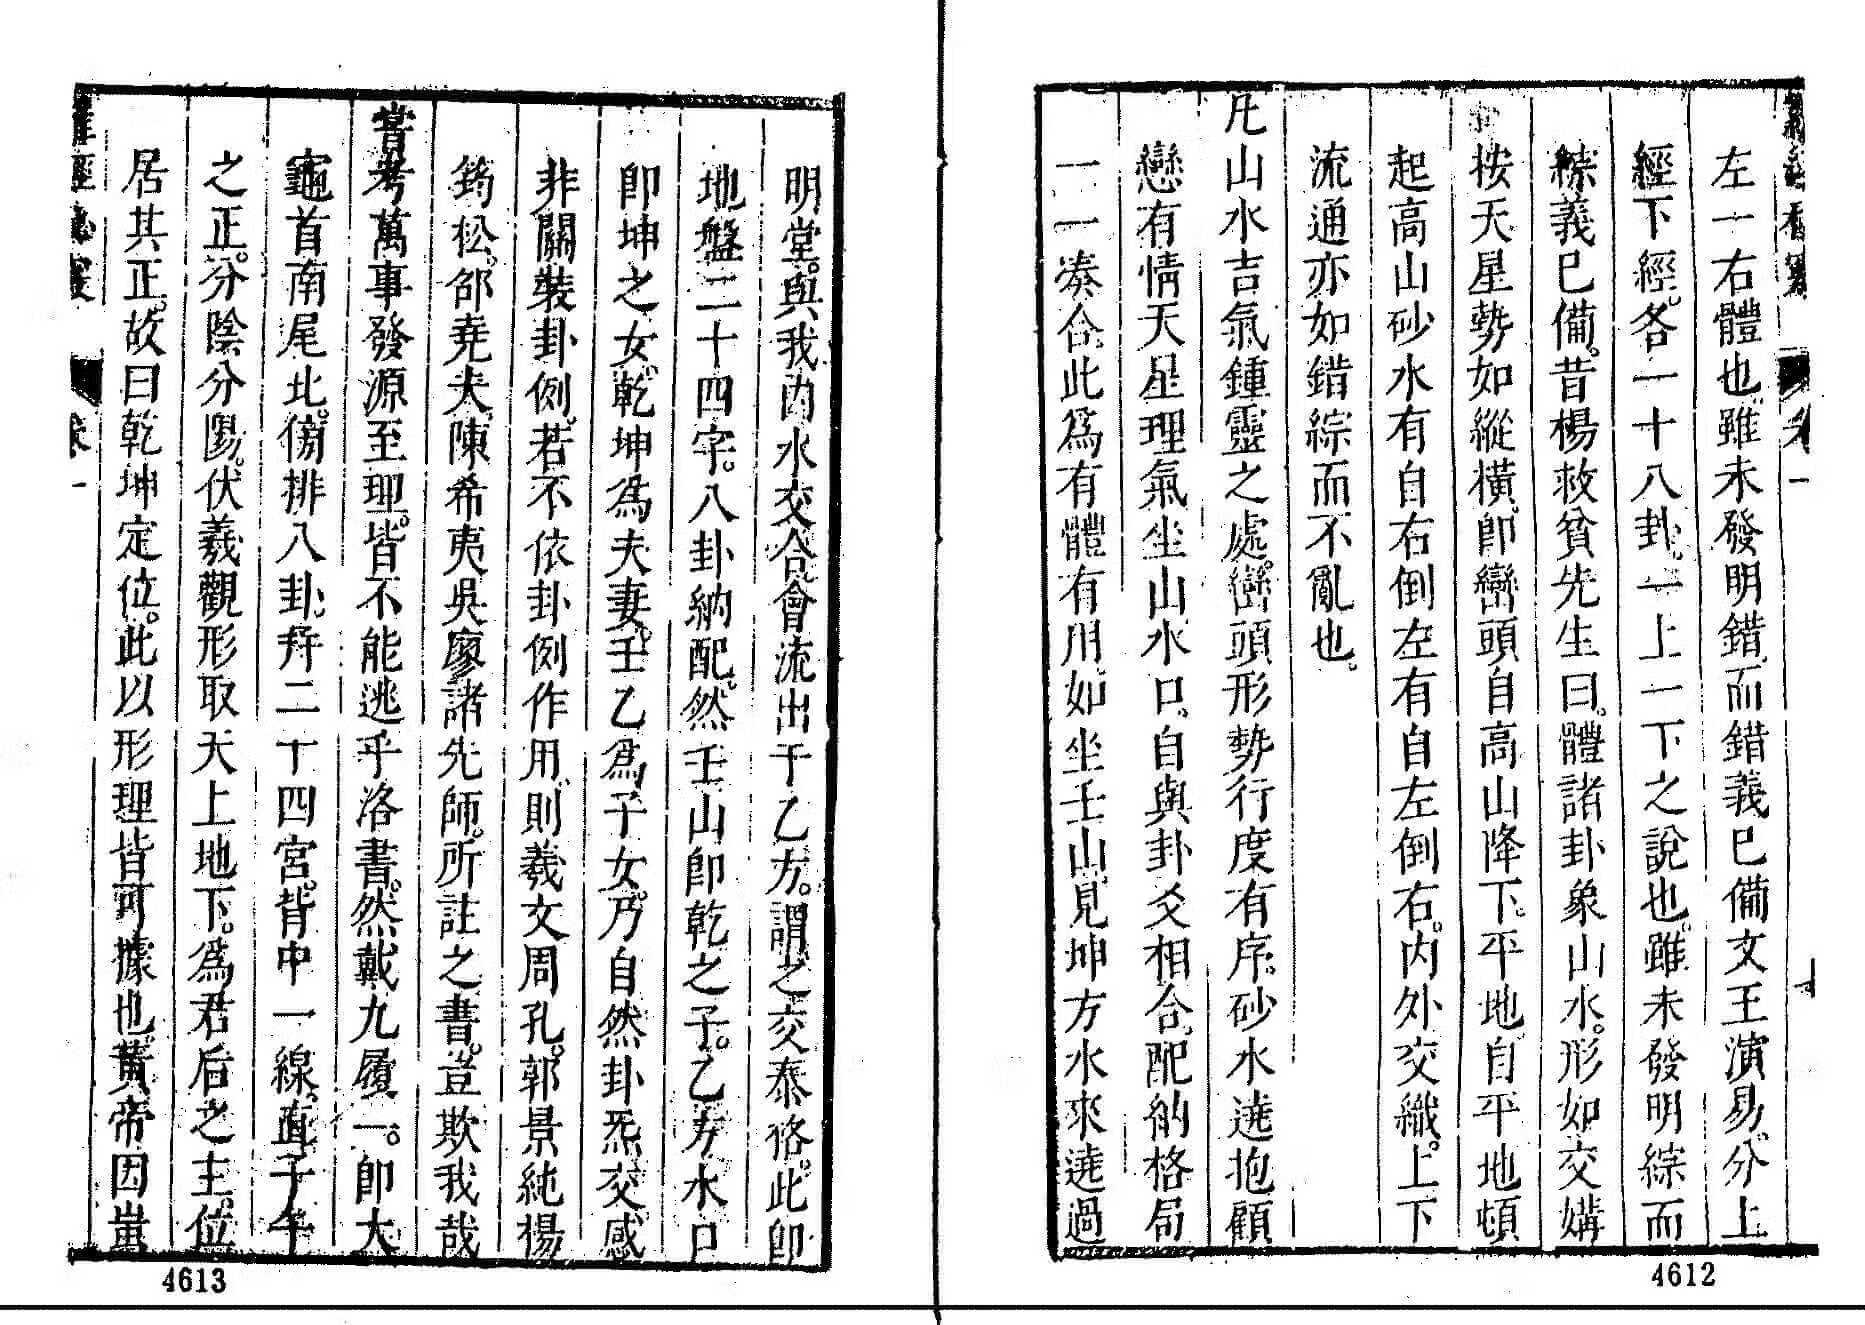 左一右體也。雖未發明錯。而錯義已備。文王演易。分上
經下經。各一十八卦。一上一下之說也。雖未發明綜。而
綜義已備。昔楊救貧先生曰。體諸卦象山水。形如交媾
按天星勢如縱橫。卽巒頭自高山降下。平地。自平地頓
起高山砂水有自右倒左有自左倒右。內外交織。上下
流通亦如錯綜而不亂也。
凡山水吉氣鍾靈之處。巒頭形勢行度有序。砂水遶抱顧
戀有情天星理氣坐山水口。自與卦爻相合。配納格局
一一湊合。此爲有體有用。如坐壬山。見坤方水來遶過
4612
明堂。與我內水交合會流出于乙方。謂之交泰佫。此卽
地盤二十四字。八卦納配。然壬山卽乾之子。乙方水口
卽坤之女。乾坤爲夫妻。壬乙爲子女。乃自然卦炁交感
非關裝卦例。若不依卦例作用。則羲文周孔。郭景純楊
筠松。邵堯夫。陳希夷吳廖諸先師。所註之書。豈欺我哉
嘗考萬事發源至理。皆不能逃乎洛書。然戴九履一。卽大
龜首南尾北。傍排八卦。幷二十四宮。背中一線。直子午
之正。分陰分陽。伏羲觀形取天上地下。爲君后之主。位
居其正。故曰乾坤定位。此以形理皆可據也。黃帝因蚩
卷一
4613